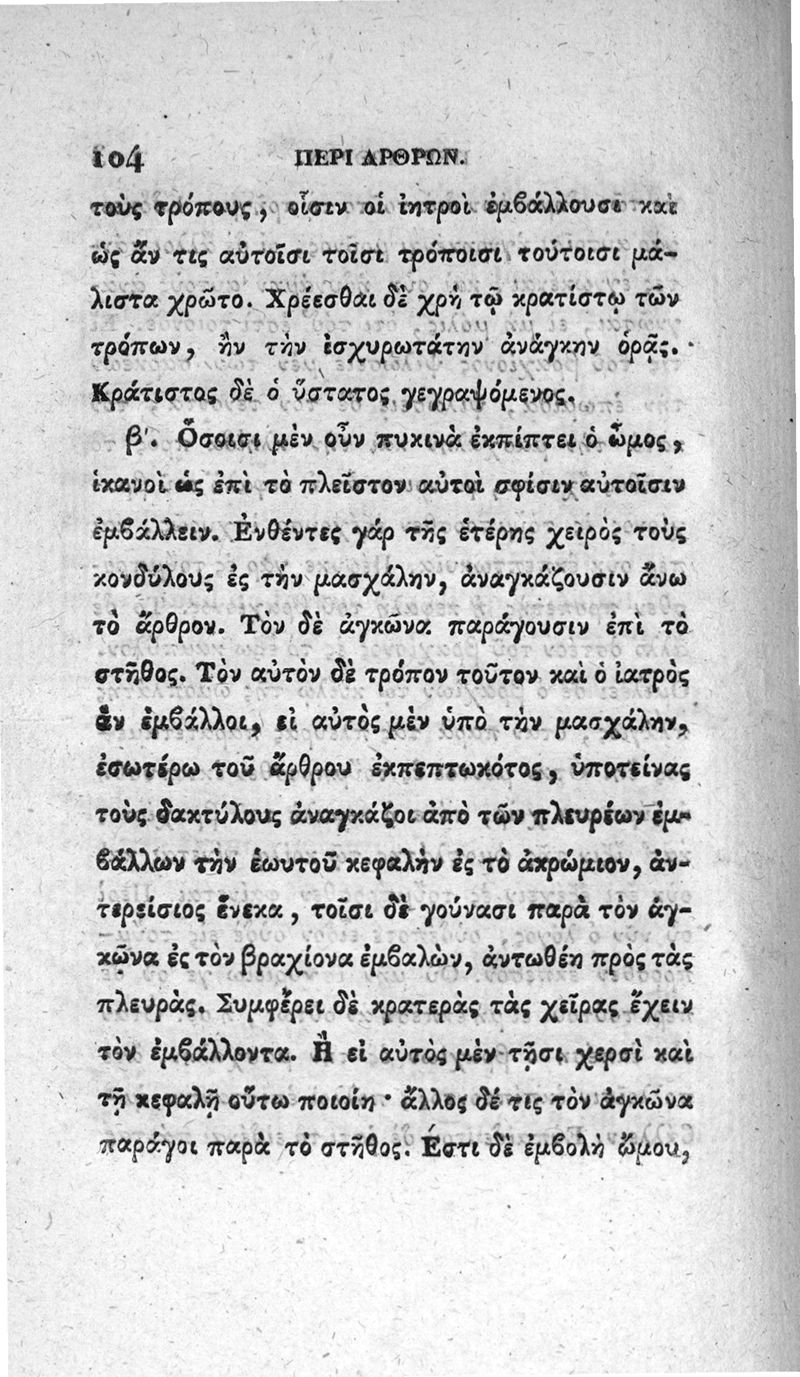 104 ΠΕΡΙ ΑΡΘΡΩΝ.
τοὺς τρόπους, οἷσιν οἱ ἰητροὶ ἐμβάλλουσι καὶ
ὡς ἄν τις αὐτοῖσι τοῖσι τρόποισι τούτοισι μά-
λιστα χρῶτο. Χρέεσθαι δὲ χρὴ τῷ κρατίστῳ τῶν
τρόπων, ἢν τὴν ἰσχυρωτάτην ἀνάγκην ὁρᾷς.
Κράτιστος δὲ ὁ ὕστατος γεγραψόμενος.
β'. Ὅσοισι μὲν οὖν πυκινὰ ἐκπίπτει ὁ ὦμος,
ἱκανοὶ ὡς ἐπὶ τὸ πλεῖστον αὐτοὶ σφίσιν αὐτοῖσιν
ἐμβάλλειν. Ἐνθέντες γάρ τῆς ἑτέρης χειρὸς τοὺς
κονδύλους ἐς τὴν μασχάλην, ἀναγκάζουσιν ἄνω
τὸ ἄρθρον. Τὸν δὲ ἀγκῶνα παράγουσιν ἐπὶ τὸ
στῆθος. Τὸν αὐτὸν δὲ τρόπον τοῦτον καὶ ὁ ἰατρὸς
ἂν ἐμβάλλοι, εἰ αὐτὸς μὲν ὑπὸ τὴν μασχάλην,
ἐσωτέρω τοῦ ἄρθρου ἐκπεπτωκότος, ὑποτείνας
τοὺς δακτύλους ἀναγκάζοι ἀπὸ τῶν πλευρέων ἐμ-
βάλλων τὴν ἑωυτοῦ κεφαλὴν ἐς τὸ ἀκρώμιον, ἀν-
τερείσιος ἕνεκα, τοῖσι δὲ γούνασι παρὰ τὸν ἀγ-
κῶνα ἐς τὸν βραχίονα ἐμβαλὼν, ἀντωθέη πρὸς τὰς
πλευρὰς. Συμφέρει δὲ κρατερὰς τὰς χεῖρας ἔχειν
τὸν ἐμβάλλοντα. Ἢ εἰ αὐτὸς μὲν τῇσι χερσὶ καὶ
τῇ κεφαλῇ οὕτω ποιοίη · ἄλλος δέ τις τὸν ἀγκῶνα
παράγοι παρὰ τὸ στῆθος. Ἔστι δὲ ἐμβολὴ ὤμου,